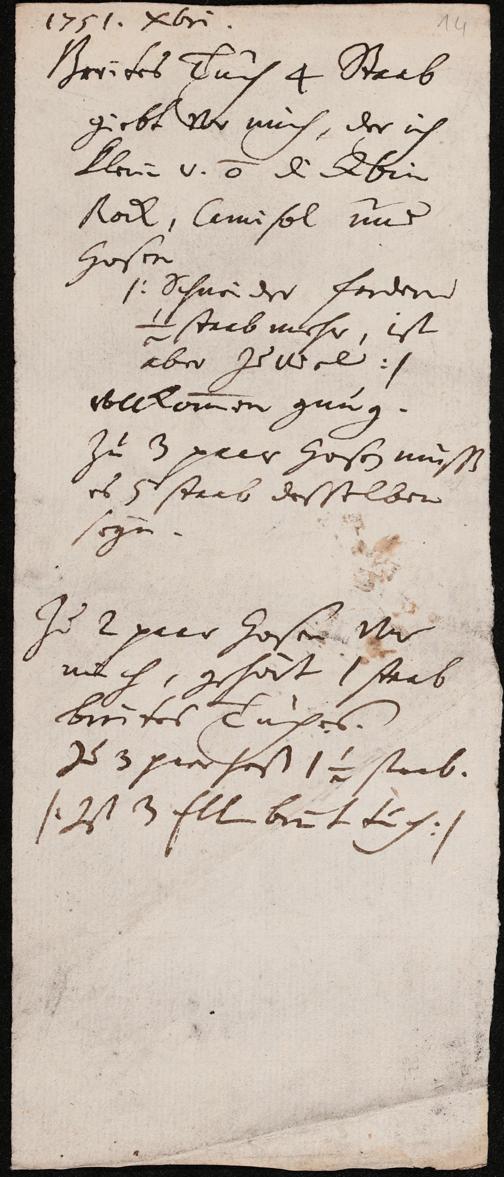 1751. Xbri.
14
Breites Tuch 4 Staab
giebt vor mich, der ich
klein v. o di
Rock, Camisol und
Hosen
/: Schneider fordern
1/2 staab mehr, ist
aber zu viel :/
vollkommen gnug.
Zu 3 paar Hosen muß
es 5 staab desselben
seyn.
Zu 2 paar Hosen vor
mich, gehört 1 staab
breites Tuches.
Zu 3 paar 1 1/2 staab.
/: Ist 3 Ell breit tuch :/